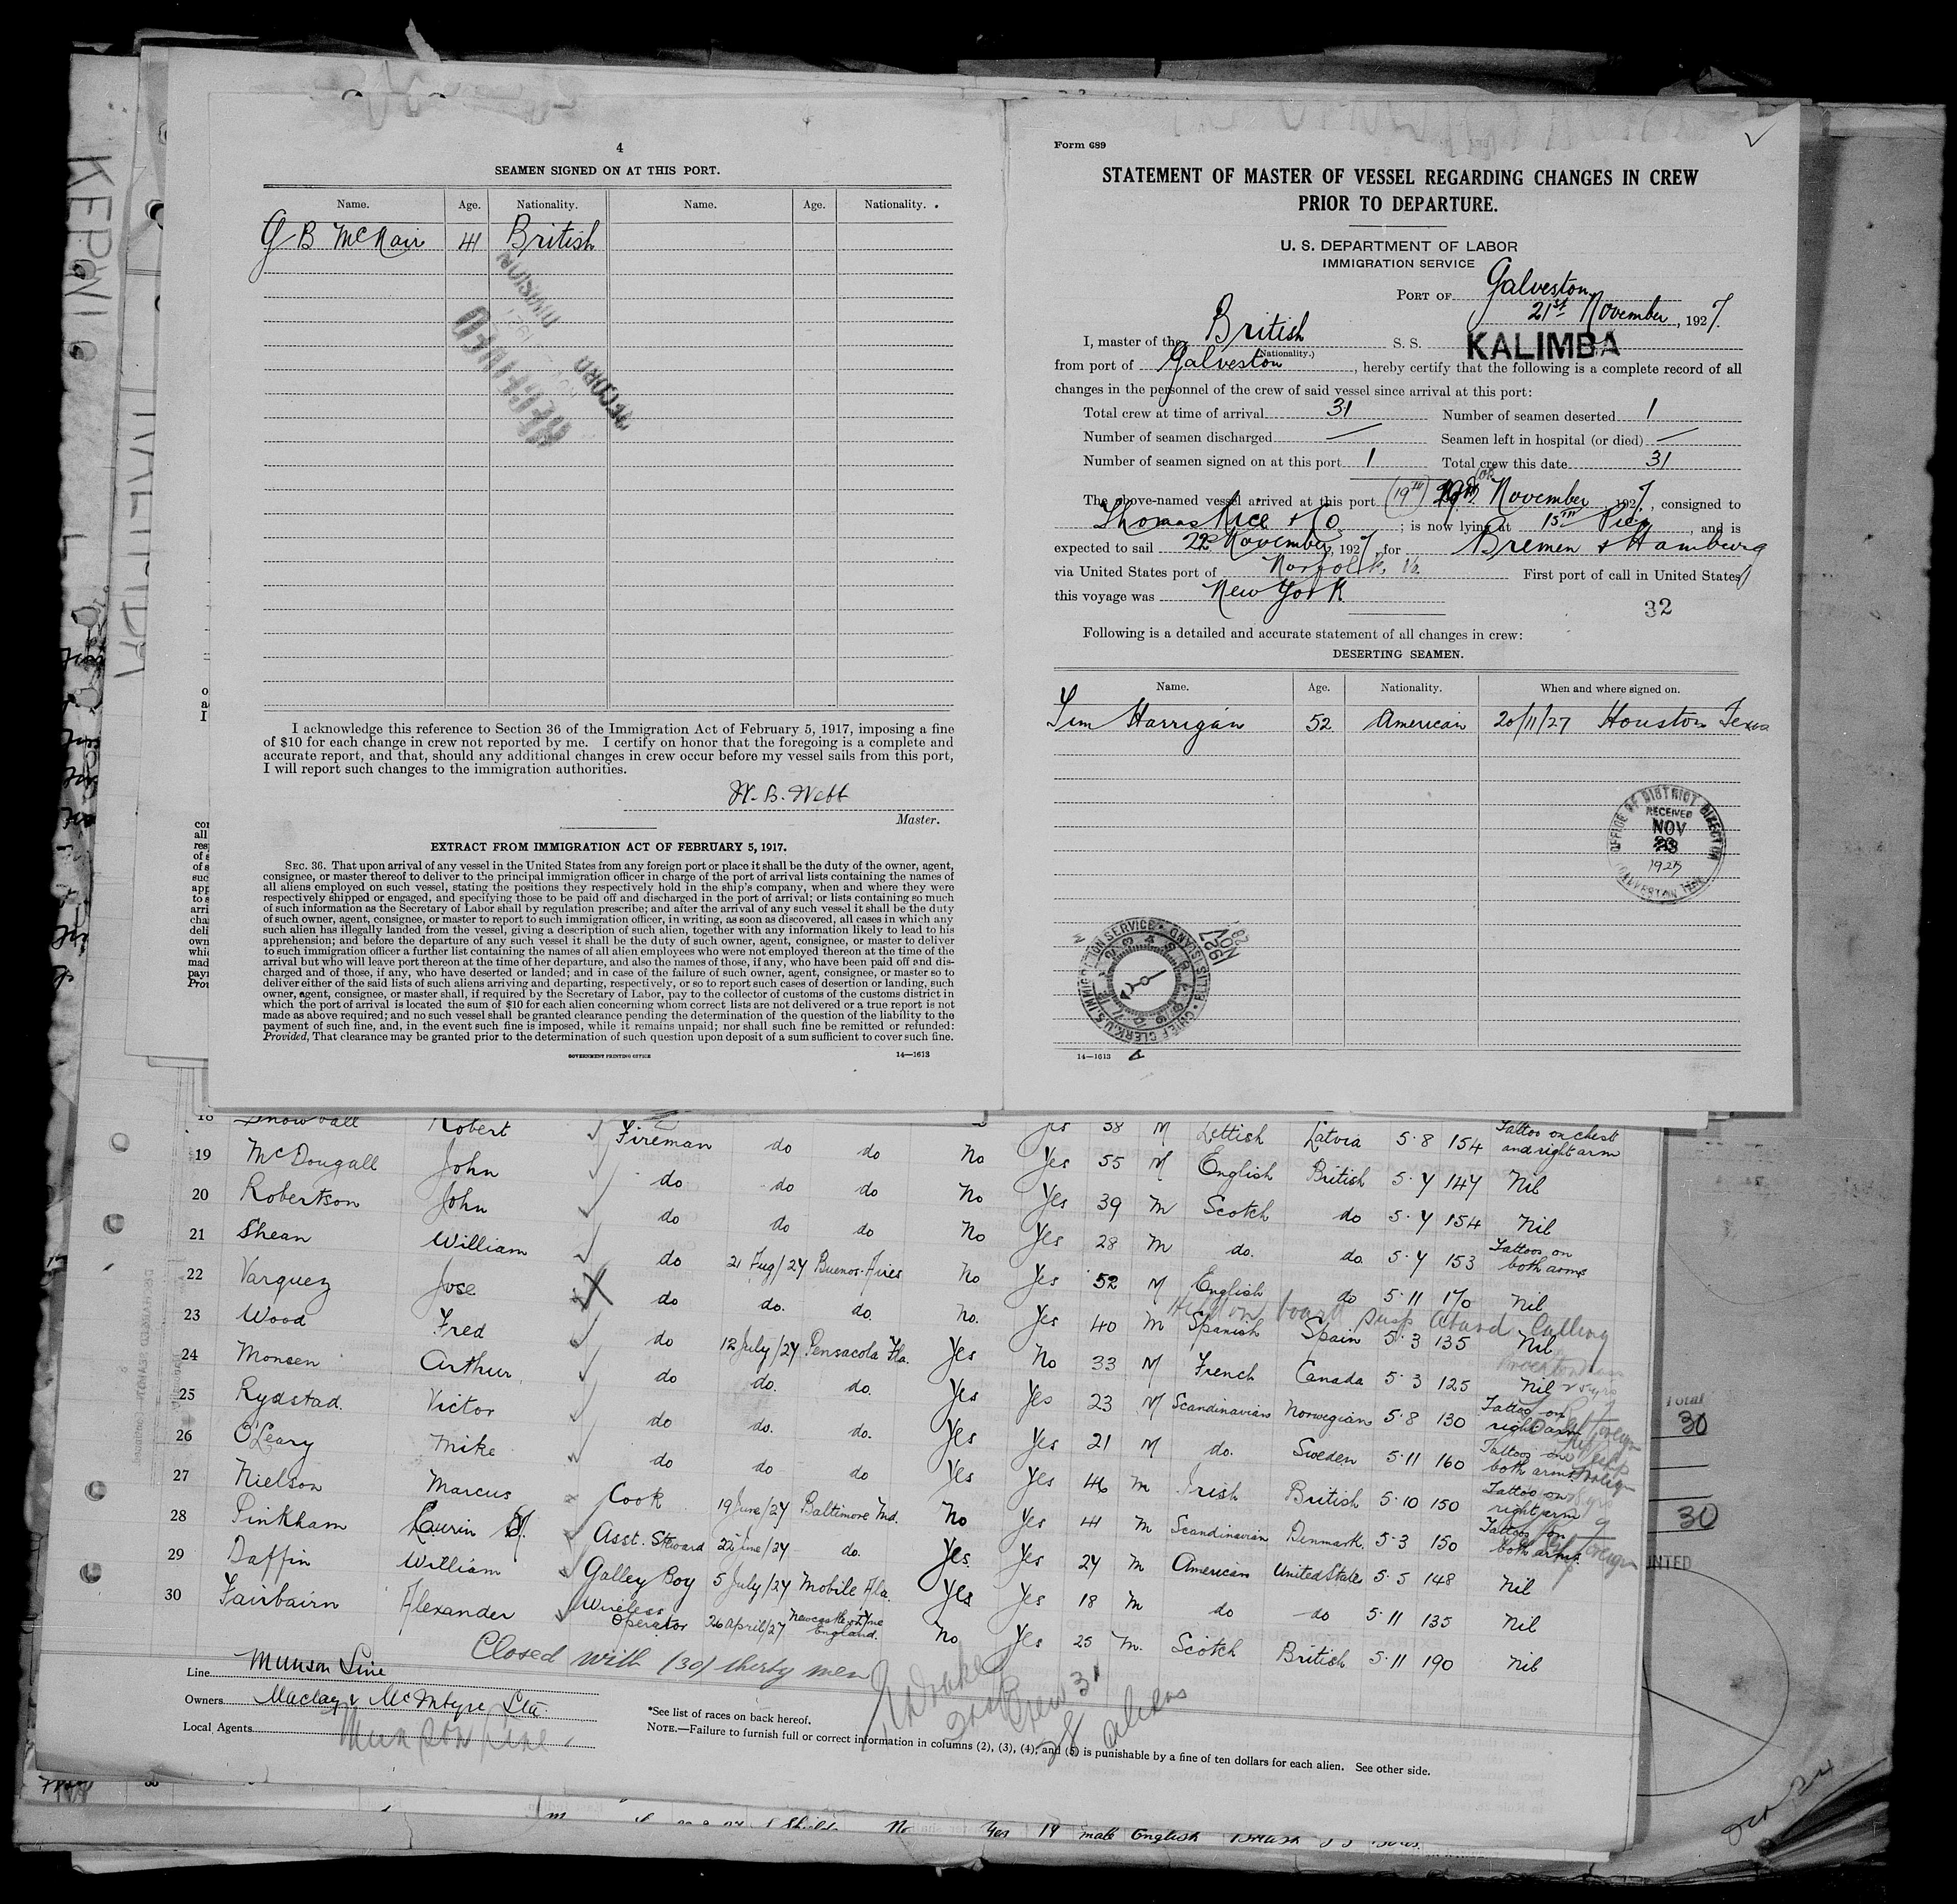 4
SEAMEN SIGNED ON AT THIS PORT.
Name. Age. Nationality. Name. Age. Nationality.
G B McNair 41 British
RECORD
DIVISION
I acknowledge this reference to Section 36 of the Immigration Act of February 5, 1917, imposing a fine
of $10 for each change in crew not reported by me. I certify on honor that the foregoing is a complete and
accurate report, and that, should any additional changes in crew occur before my vessel sails from this port,
I will report such changes to the immigration authorities.
W. B. Webb
Master.
EXTRACT FROM IMMIGRATION ACT OF FEBRUARY 5, 1917.
SEC. 36. That upon arrival of any vessel in the United States from any foreign port or place it shall be the duty of the owner, agent,
consignee, or master thereof to deliver to the principal immigration officer in charge of the port of arrival lists containing the names of
all aliens employed on such vessel, stating the positions they respectively hold in the ship's company, when and where they were
respectively shipped or engaged, and specifying those to be paid off and discharged in the port of arrival; or lists containing so much
of such information as the Secretary of Labor shall by regulation prescribe; and after the arrival of any such vessel it shall be the duty
of such owner, agent, consignee, or master to report to such immigration officer, in writing, as soon as discovered, all cases in which any
such alien has illegally landed from the vessel, giving a description of such alien, together with any information likely to lead to his
apprehension; and before the departure of any such vessel it shall be the duty of such owner, agent, consignee, or master to deliver
to such immigration officer a further list containing the names of all alien employees who were not employed thereon at the time of the
arrival but who will leave port thereon at the time of her departure, and also the names of those, if any, who have been paid off and dis-
charged and of those, if any, who have deserted or landed; and in case of the failure of such owner, agent, consignee, or master so to
deliver either of the said lists of such aliens arriving and departing, respectively, or so to report such cases of desertion or landing, such
owner, agent, consignee, or master shall, if required by the Secretary of Labor, pay to the collector of customs of the customs district in
which the port of arrival is located the sum of $10 for each alien concerning whom correct lists are not delivered or a true report is not
made as above required; and no such vessel shall be granted clearance pending the determination of the question of the liability to the
payment of such fine, and, in the event such fine is imposed, while it remains unpaid; nor shall such fine be remitted or refunded:
Provided, That clearance may be granted prior to the determination of such question upon deposit of a sum sufficient to cover such fine.
GOVERNMENT PRINTING OFFICE 14—1613
Form 689
STATEMENT OF MASTER OF VESSEL REGARDING CHANGES IN CREW
PRIOR TO DEPARTURE.
U. S. DEPARTMENT OF LABOR
IMMIGRATION SERVICE
PORT OF Galveston
21st November, 1927.
I, master of the British S. S. KALIMBA
(Nationality.)
from port of Galveston, hereby certify that the following is a complete record of all
changes in the personnel of the crew of said vessel since arrival at this port:
Total crew at time of arrival 31 Number of seamen deserted 1
Number of seamen discharged — Seamen left in hospital (or died) —
Number of seamen signed on at this port 1 Total crew this date 31
The above-named vessel arrived at this port (19th) November, 1927, consigned to
Thomas Rice & Co.; is now lying at 15th Pier, and is
expected to sail 22 November, 1927, for Bremen & Hamburg
via United States port of Norfolk, Va. First port of call in United States
this voyage was New York
32
Following is a detailed and accurate statement of all changes in crew:
DESERTING SEAMEN.
Name. Age. Nationality. When and where signed on.
Tim Harrigan 52 American 20/11/27 Houston Texas
OFFICE OF DISTRICT DIRECTOR
RECEIVED
NOV
1927
GALVESTON TEX
NOV 28 1927
14—1613
18 Snowball Robert ✓ Fireman do do Yes 38 M Lettish Latvia 5·8 154 Tattoo on chest and right arm
19 McDougall John ✓ do do do No Yes 55 M English British 5·4 147 Nil
20 Robertson John ✓ do do do No Yes 39 M Scotch do 5·4 154 Nil
21 Shean William ✓ do 21 Aug/27 Buenos Aires No Yes 28 M do. do. 5·4 153 Tattoos on both arms
22 Varquez Jose X do do. do. No Yes 52 M English do 5·11 170 Nil
Held on board
23 Wood Fred ✓ do 12 July/27 Pensacola Fla. No. Yes 40 M Spanish Spain 5·3 135 Nil
24 Monsen Arthur ✓ do do. do. Yes No 33 M French Canada 5·3 125 Nil
25 Rydstad. Victor ✓ do do. do. Yes Yes 23 M Scandinavian Norwegian 5·8 130 Tattoo on right arm
26 O'Leary Mike ✓ do do do Yes Yes 21 M do. Sweden 5·11 160 Tattoos on both arms
27 Nielson Marcus Cook 19 June/27 Baltimore Md. Yes Yes 46 M Irish British 5·10 150 Tattoo on right arm
28 Pinkham Laurin ✓ Asst. Steward 22 June/27 do. No Yes 41 M Scandinavian Denmark. 5·3 150 Tattoos on both arms.
29 Daffin William ✓ Galley Boy 5 July/27 Mobile Ala. Yes. Yes 24 M American United States 5·5 148 Nil
30 Fairbairn Alexander ✓ Wireless Operator 26 April/27 Newcastle on Tyne England. Yes Yes 18 M do do 5·11 135 Nil
No Yes 25 M. Scotch British 5·11 190 Nil
Closed with (30) thirty men
Line Munson Line
Owners Maclay & McIntyre Ltd.
Local Agents Munson Line
Crew 31
28 aliens
*See list of races on back hereof.
NOTE.—Failure to furnish full or correct information in columns (2), (3), (4), and (5) is punishable by a fine of ten dollars for each alien. See other side.
Total
30
30
No Yes 19 male English British